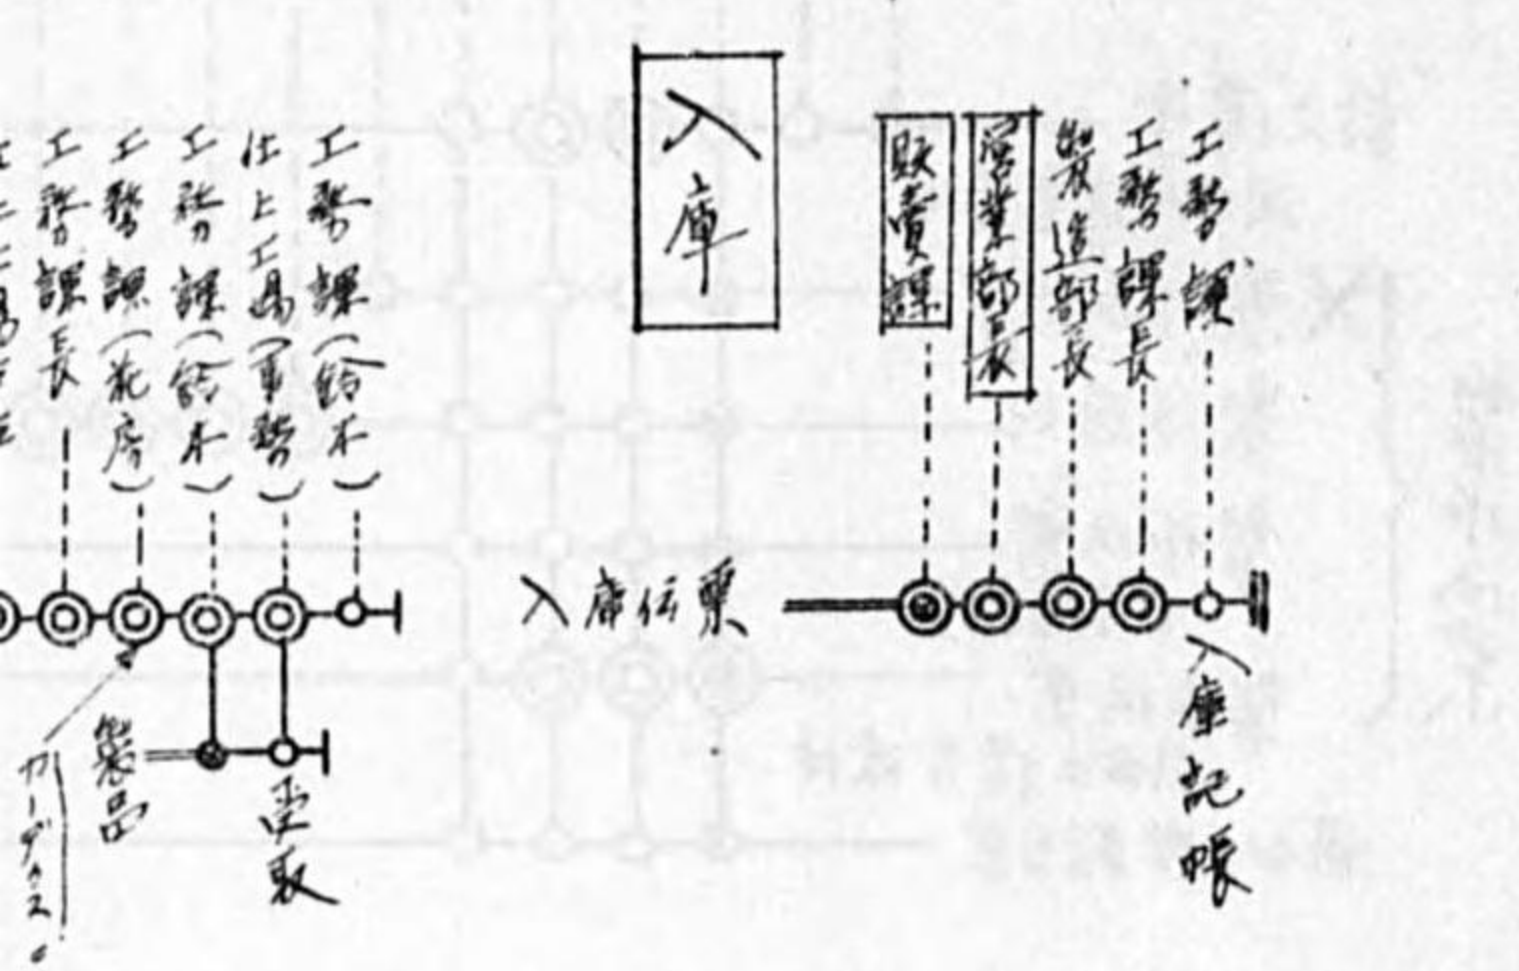 工務課
工務課長
製造部長
営業部長
販賣課
入庫
入庫伝票
入庫記帳
工務課(鈴木)
仕上工場(事務)
工務課(鈴木)
工務課(花房)
工務課長
製品
受取